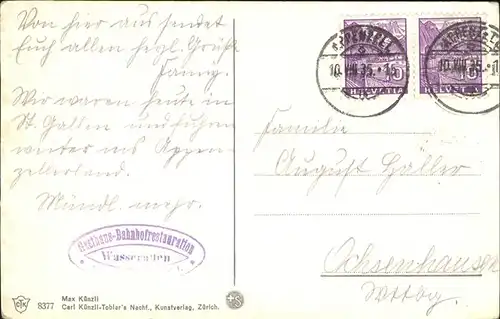 Von hier aus sendet
Euch allen hezl. Grüße
Fanny.
Wir waren heute in
St. Gallen und fuhren
weiter ins Appen-
zellerland.
Mündl. mehr.
Gasthaus-Bahnhofrestauration
Wasserauen
APPENZELL
10.VIII.35.
15
HELVETIA
APPENZELL
10.VIII.35.
15
HELVETIA
Familie
August Haller
Ochsenhausen
Wttbg.
8377
Max Künzli
Carl Künzli-Tobler's Nachf., Kunstverlag, Zürich.